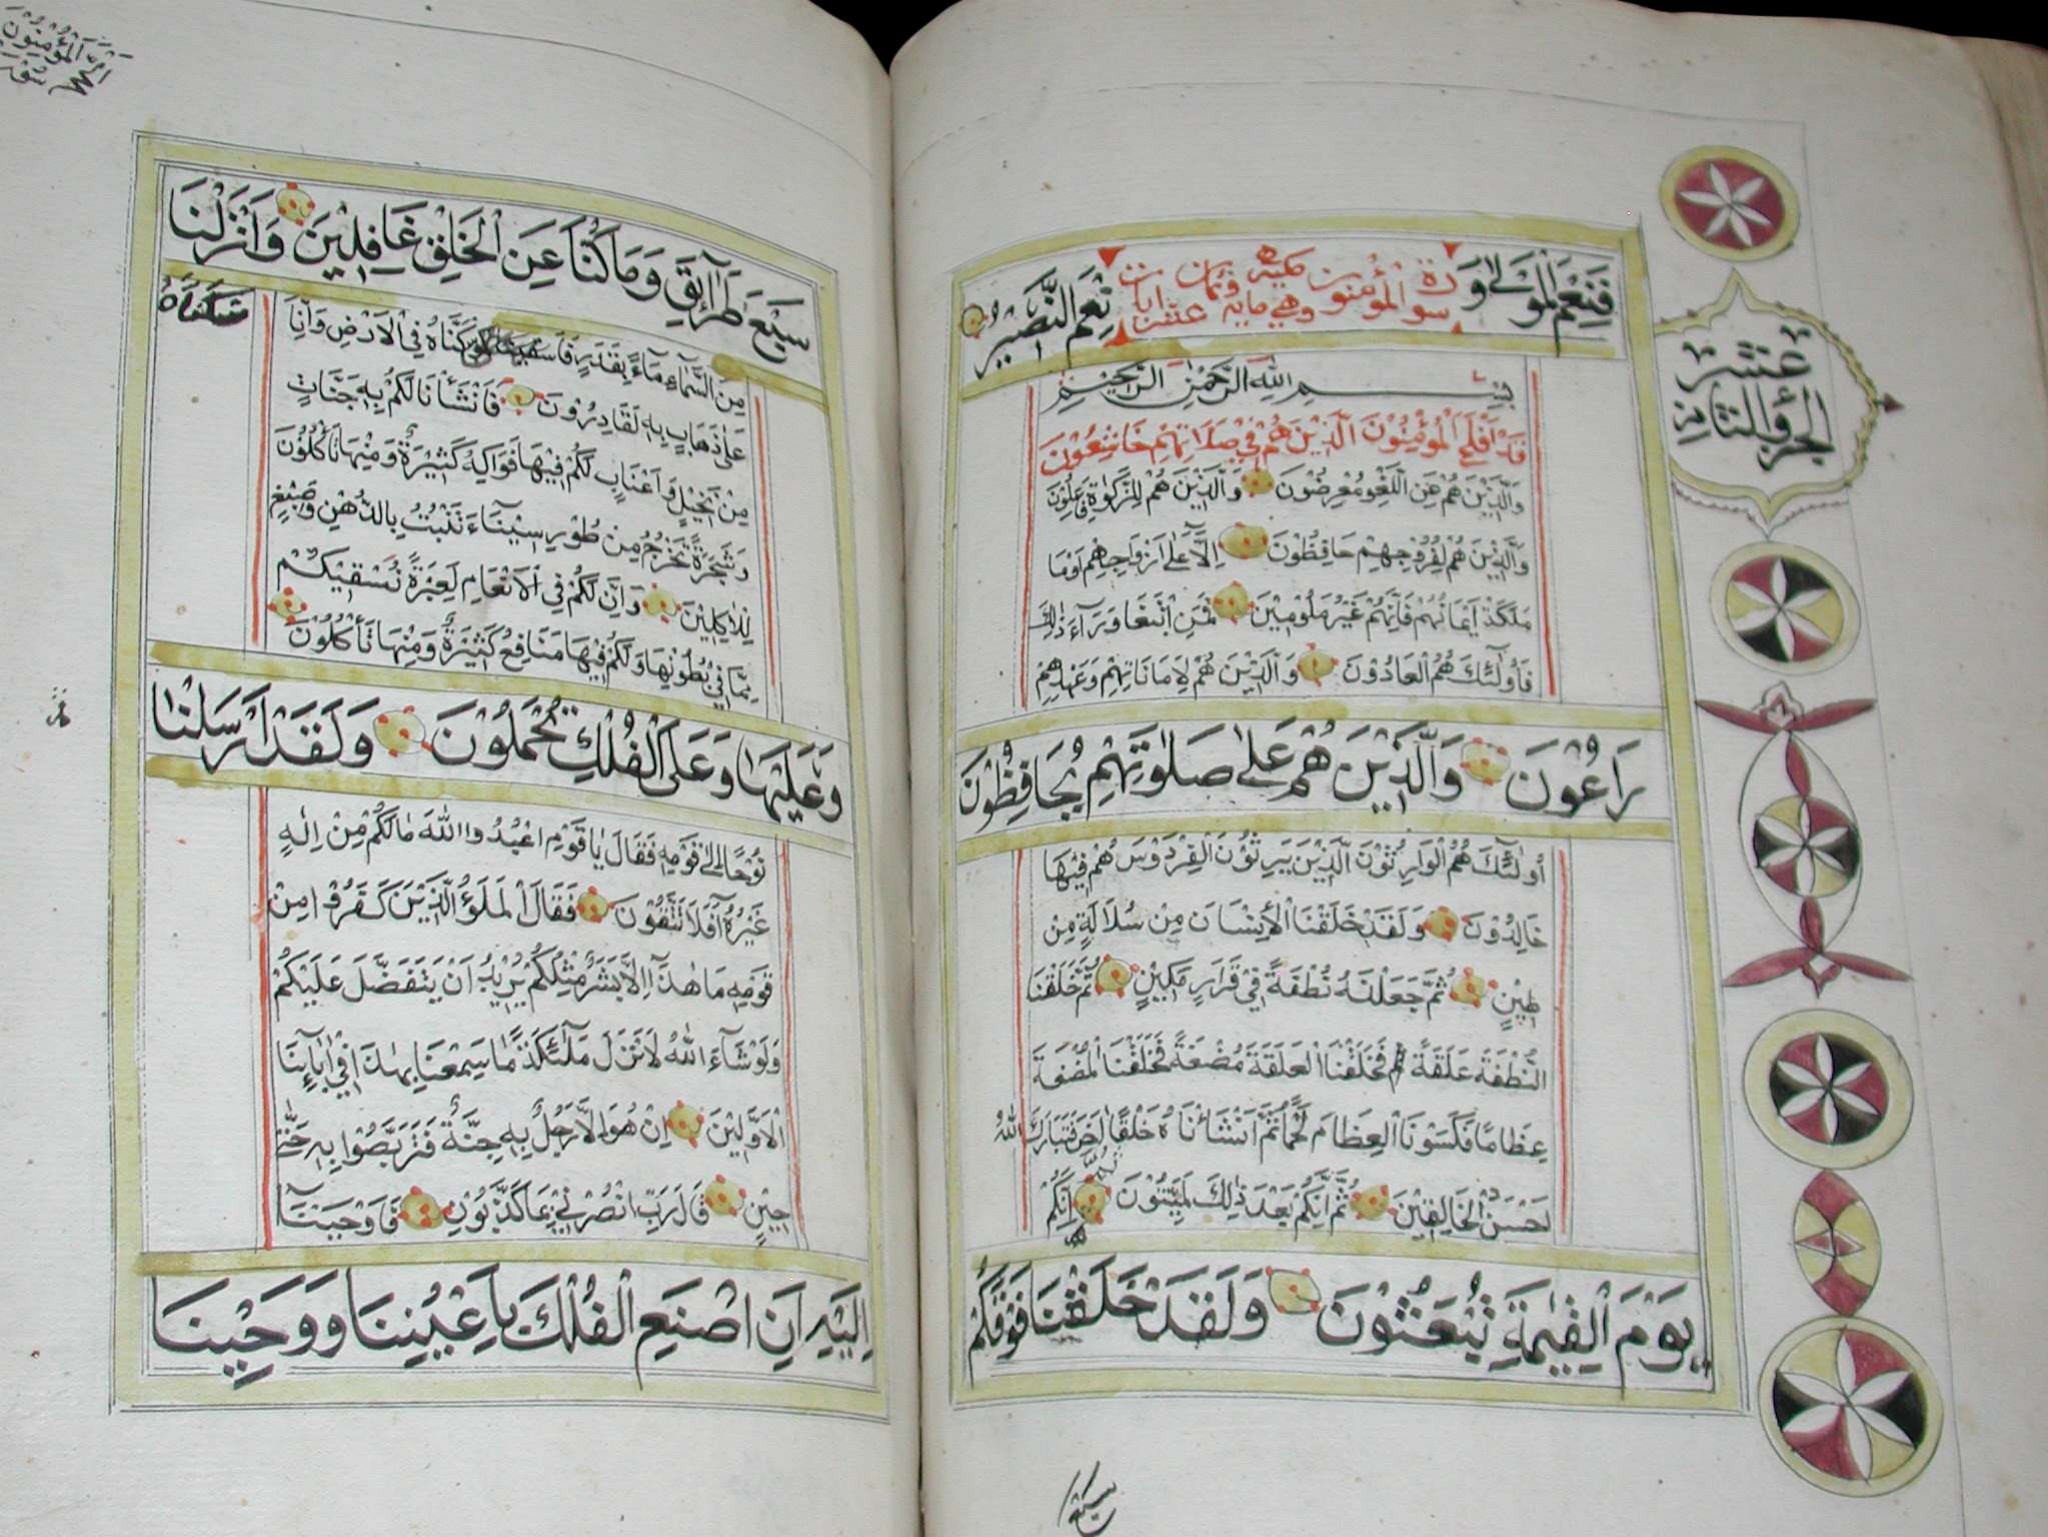 فَنِعْمَ الْمَوْلٰى وَ
سورة المؤمنون مكية
وهي مايه وثمان عشر ايات
نِعْمَ النَّصِيْرُ
بِسْمِ اللّٰهِ الرَّحْمٰنِ الرَّحِيْمِ
قَدْ اَفْلَحَ الْمُؤْمِنُوْنَ الَّذِيْنَ هُمْ فِيْ صَلَاتِهِمْ خَاشِعُوْنَ
وَالَّذِيْنَ هُمْ عَنِ اللَّغْوِ مُعْرِضُوْنَ وَالَّذِيْنَ هُمْ لِلزَّكٰوةِ فَاعِلُوْنَ
وَالَّذِيْنَ هُمْ لِفُرُوْجِهِمْ حَافِظُوْنَ اِلَّا عَلٰى اَزْوَاجِهِمْ اَوْمَا
مَلَكَتْ اَيْمَانُهُمْ فَاِنَّهُمْ غَيْرُ مَلُوْمِيْنَ فَمَنِ ابْتَغَا وَرَآءَ ذٰلِكَ
فَاُولٰٓئِكَ هُمُ الْعَادُوْنَ وَالَّذِيْنَ هُمْ لِاَمَانَاتِهِمْ وَعَهْدِهِمْ
رَاعُوْنَ وَالَّذِيْنَ هُمْ عَلٰى صَلَوٰتِهِمْ يُحَافِظُوْنَ
اُولٰٓئِكَ هُمُ الْوَارِثُوْنَ الَّذِيْنَ يَرِثُوْنَ الْفِرْدَوْسَ هُمْ فِيْهَا
خَالِدُوْنَ وَلَقَدْ خَلَقْنَا الْاِنْسَانَ مِنْ سُلَالَةٍ مِنْ
طِيْنٍ ثُمَّ جَعَلْنٰهُ نُطْفَةً فِيْ قَرَارٍ مَكِيْنٍ ثُمَّ خَلَقْنَا
النُّطْفَةَ عَلَقَةً ثم فَخَلَقْنَا الْعَلَقَةَ مُضْغَةً فَخَلَقْنَا الْمُضْغَةَ
عِظَامًا فَكَسَوْنَا الْعِظَامَ لَحْمًا ثُمَّ اَنْشَاْنَاهُ خَلْقًا اٰخَرَ فَتَبَارَكَ اللّٰهُ
اَحْسَنُ الْخَالِقِيْنَ ثُمَّ اِنَّكُمْ بَعْدَ ذٰلِكَ لَمَيِّتُوْنَ ثُمَّ اِنَّكُمْ
يَوْمَ الْقِيٰمَةِ تُبْعَثُوْنَ وَلَقَدْ خَلَقْنَا فَوْقَكُمْ
سبع
عشر
الجزؤ الثامن
سَبْعَ طَرَآئِقَ وَمَا كُنَّا عَنِ الْخَلْقِ غَافِلِيْنَ وَاَنْزَلْنَا
مِنَ السَّمَآءِ مَآءً بِقَدَرٍ فَاَسْكَنَّاهُ فِي الْاَرْضِ وَاِنَّا
عَلٰى ذَهَابٍ بِهٖ لَقَادِرُوْنَ فَاَنْشَاْنَا لَكُمْ بِهٖ جَنَّاتٍ
مِنْ نَخِيْلٍ وَاَعْنَابٍ لَكُمْ فِيْهَا فَوَاكِهُ كَثِيْرَةٌ وَمِنْهَا تَاْكُلُوْنَ
وَشَجَرَةً تَخْرُجُ مِنْ طُوْرِ سِيْنَآءَ تَنْبُتُ بِالدُّهْنِ وَصِبْغٍ
لِلْاٰكِلِيْنَ وَاِنَّ لَكُمْ فِي الْاَنْعَامِ لَعِبْرَةً نُسْقِيْكُمْ
مِمَّا فِيْ بُطُوْنِهَا وَلَكُمْ فِيْهَا مَنَافِعُ كَثِيْرَةٌ وَمِنْهَا تَاْكُلُوْنَ
وَعَلَيْهَا وَعَلَى الْفُلْكِ تُحْمَلُوْنَ وَلَقَدْ اَرْسَلْنَا
نُوْحًا اِلٰى قَوْمِهٖ فَقَالَ يَا قَوْمِ اعْبُدُوا اللّٰهَ مَا لَكُمْ مِنْ اِلٰهٍ
غَيْرُهُ اَفَلَا تَتَّقُوْنَ فَقَالَ الْمَلَؤُ الَّذِيْنَ كَفَرُوْا مِنْ
قَوْمِهٖ مَا هٰذَآ اِلَّا بَشَرٌ مِثْلُكُمْ يُرِيْدُ اَنْ يَتَفَضَّلَ عَلَيْكُمْ
وَلَوْ شَآءَ اللّٰهُ لَاَنْزَلَ مَلٰٓئِكَةً مَا سَمِعْنَا بِهٰذَا فِيْ اٰبَآئِنَا
الْاَوَّلِيْنَ اِنْ هُوَ اِلَّا رَجُلٌ بِهٖ جِنَّةٌ فَتَرَبَّصُوْا بِهٖ حَتّٰى
حِيْنٍ قَالَ رَبِّ انْصُرْنِيْ بِمَا كَذَّبُوْنِ فَاَوْحَيْنَآ
اِلَيْهِ اَنِ اصْنَعِ الْفُلْكَ بِاَعْيُنِنَا وَوَحْيِنَا